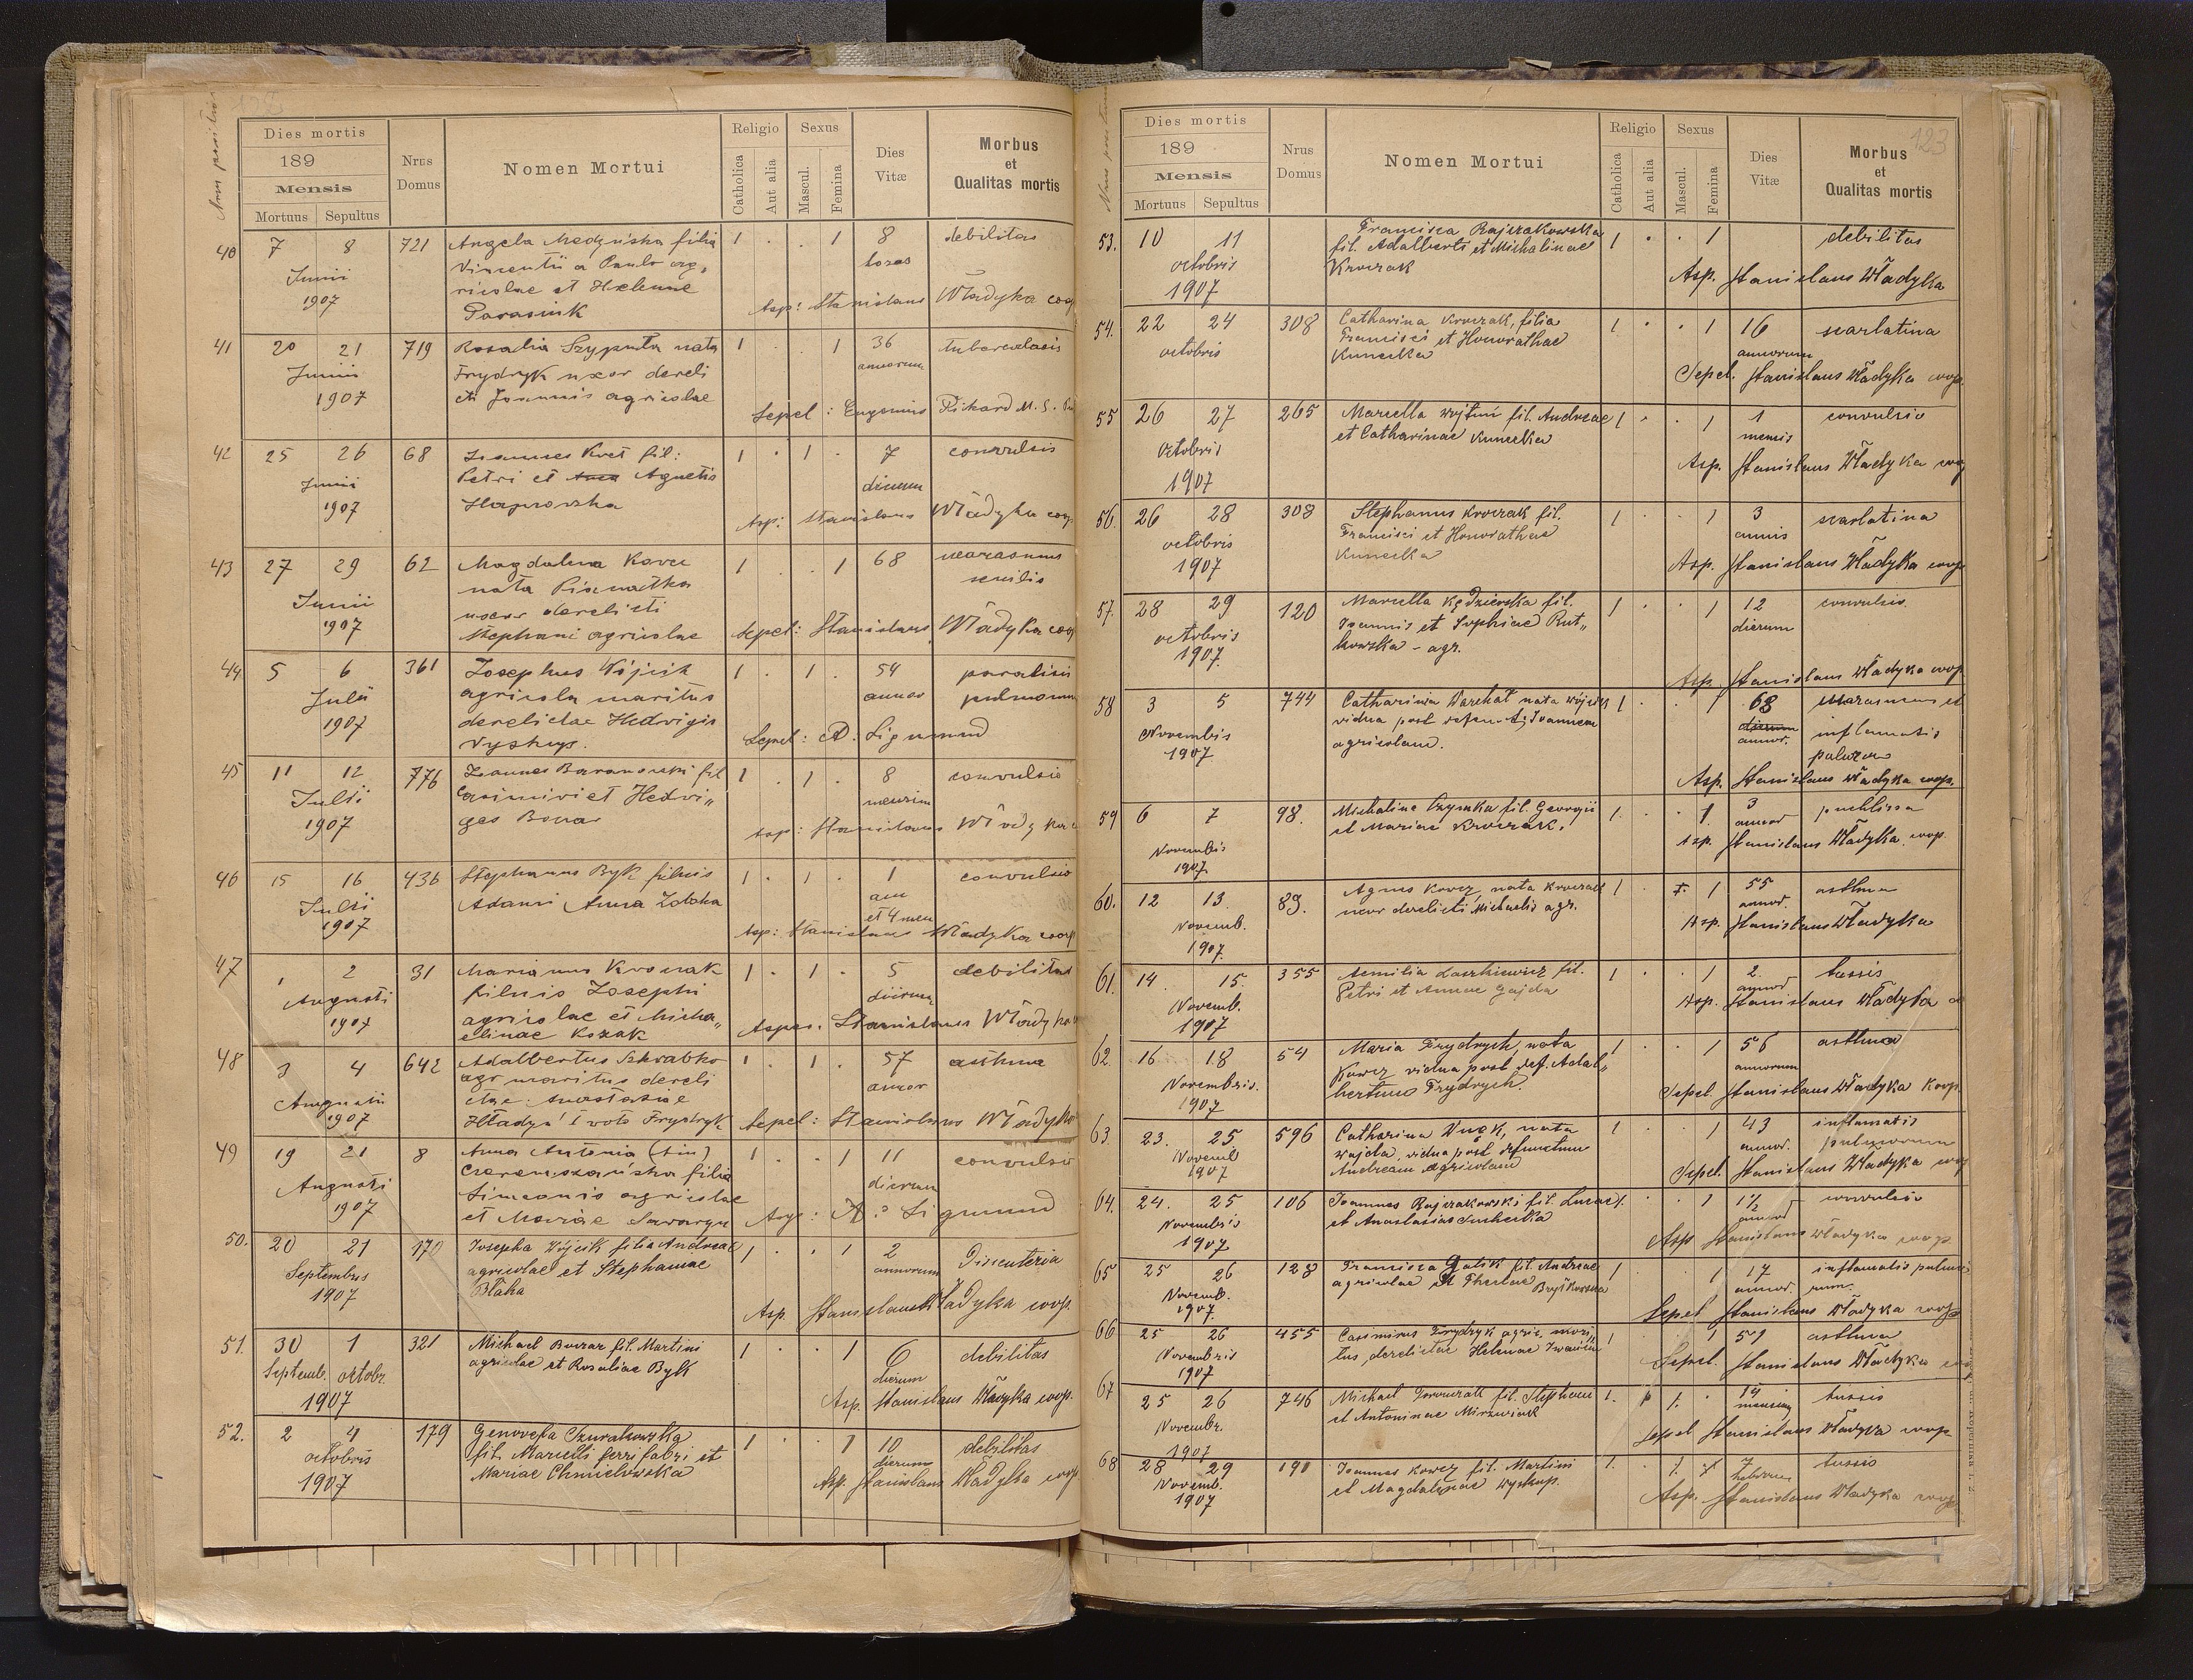 Dies mortis
189
Mensis
Mortuus Sepultus
Nrus Domus
Nomen Mortui
Religio
Catholica
Aut alia
Sexus
Mascul.
Femina
Dies Vitæ
Morbus
et
Qualitas mortis
40 7 8 721 Angela Medyńska filia 1 . . 1 8 debilitas
Junii Vincentii a Paulo ag„ horas
1907 ricolae et Helenae
Parasiuk Asp: Stanislaus Władyka coop
41 20 21 719 Rosalia Szypuła nata 1 . 1 36 tuberculosis
Junii Frydryk uxor dereli annorum
1907 cti Joannis agricolae
Sepel: Eugenius Rikard M. S.
42 25 26 68 Joannes Kret fil: 1 . 1 . 7 convulsis
Junii Petri et Anna Agnetis dierum
1907 Asp: Stanislaus Władyka coop
43 27 29 62 Magdalena Kowcz 1 . . 1 68 marasmus
nata senilis
Junii uxor derelicti
1907 Stephani agricolae Sepel: Stanislaus Władyka coop
44 5 6 361 Josephus Wójcik 1 . 1 . 54 paralisis
Julii agricola maritus annos pulmonum
1907 derelictae Hedvigis
Wyskup. Sepel: A. Sigmund
45 11 12 776 Joannes Baranowski fil 1 . 1 . 8 convulsio
Julii Casimiri et Hedvi„ mensium
1907 ges Bonar Asp: Stanislaus Władyka
46 15 16 436 Stephanus Byk filius 1 . 1 . 1 convulsio
Julii Adami Anna Zoloha ann
1907 et 4 men
Asp: Stanislaus Władyka coop
47 1 2 31 Marianus Kroczak 1 . 1 . 5 debilitas
Augusti filius Josephi dierum
1907 agricolae et Micha„
elinae Kozak Asper. Stanislaus Władyka
48 3 4 642 Adalbertus Skrabko 1 . 1 . 57 asthma
agr maritus dereli annor
Augusti ctae Anastasiae
1907 Hładyś I voto Frydryk Sepel: Stanislaus Władyka
49 19 21 8 Anna Antonia (bin) 1 . . 1 11 convulsio
Augusti Czeremszańska filia dierum
1907 Simeonis agricolae
et Mariae Sawaryn Asp: A. Sigmund
50. 20 21 170 Josepha Wójcik filia Andreae 1 . . 1 2 Dissenteria
Septembris agricolae et Stephaniae annorum
1907 Błaha
Asp. Stanislaus Władyka coop.
51. 30 1 321 Michael Burzar fil. Martini 1 . . 1 6 debilitas
Septemb. octobr. agricolae et Rosaliae Byłk dierum
1907 Asp. Stanislaus Władyka coop.
52. 2 4 179 Genovefa Czurakowska 1 . . 1 10 debilitas
octobris fil. Marcelli ferri fabri et dierum
1907 Mariae Chmielowska Asp. Stanislaus Władyka coop
123
Dies mortis
189
Mensis
Mortuus Sepultus
Nrus Domus
Nomen Mortui
Religio
Catholica
Aut alia
Sexus
Mascul.
Femina
Dies Vitæ
Morbus
et
Qualitas mortis
53. 10 11 Francisca Rajczakowska 1 . . 1 debilitas
octobris fil. Adalberti et Michalinae
1907 Kroczak Asp. Stanislaus Władyka
54. 22 24 308 Catharina Kroczak, filia 1 . . 1 16 scarlatina
octobris Francisci et Honorathae annorum
Kunecka Sepel. Stanislaus Władyka coop.
55 26 27 265 Marcella Wojtuń fil. Andreae 1 . . 1 1 convulsio
octobris et Catharinae Kunecka mensis
1907 Asp. Stanislaus Władyka coop
56. 26 28 308 Stephanus Kroczak fil. 1 . . 1 3 scarlatina
octobris Francisci et Honorathae annis
1907 Kunecka Asp. Stanislaus Władyka coop
57. 28 29 120 Marcella Kędzierska fil. 1 . . 1 12 convulsio.
octobris Joannis et Sophiae Rut„ dierum
1907. kowska - agr.
Asp. Stanislaus Władyka coop
58 3 5 744 Catharina Warchał nata Wójcik 1 . . 1 68 marasmus et
Novembis vidua post defunct; Joannem dierum annor. inflamatis
1907 agricolam. pulmon
Asp. Stanislaus Władyka coop.
59 6 7 98. Michalina Czymka fil. Georgii 1. . . 1. 3 puchlina
Novembis et Mariae Kroczak. annor
1907 Asp. Stanislaus Władyka. coop.
60. 12 13 89. Agnes Kowcz, nata Kroczak 1 . 1 55 asthma
Novemb. uxor derelicti Michaelis agr. annor.
1907 Asp. Stanislaus Władyka
61. 14 15. 355 Aemilia Laszkiewicz fil. 1 . . 1 2. tussis
Novemb. Petri et Annae Gajda annor
1907 Asp. Stanislaus Władyka
62 16 18 54 Maria Frydrych, nata 1 . . 1 56 asthma
Novembris. Kowcz vidua post def. Adal„ annorum
1907 bertum Frydrych. Sepel. Stanislaus Władyka koop
63. 23. 25. 596 Catharina Wuck, nata 1 . 1 43 inflamatis
Novemb Wajda, vidua post defunctum annor. pulmonum
1907 Andream agricolam Sepel. Stanislaus Władyka coop
64. 24. 25 106 Joannes Rajczakowski fil. Lucae 1. . 1 1½ convulsio
Novembris et Anastasiae annor
1907 Asp Stanislaus Władyka coop
65 25 26 128 Francisca Galik fil. Andreae 1 . 1 17 inflamatis pulmo
Novemb. agricolae et Theclae annor. num.
1907. Sepel Stanislaus Władyka coop
66 25 26 455 Casimirus Frydryk agric. mari„ 1 . 1 51 asthma
Novembris tus derelictae Helenae
1907 Sepel. Stanislaus Władyka
67 25 26 746 Michael fil. Stephani 1. 1. . 14 tussis
Novembr. et Antoninae mensium
1907 Sepel Stanislaus Władyka coop
68 28 29 191 Joannes Kowcz fil. Martini 1. . 1. 7 tussis
Novemb. et Magdalenae Wyskup. hebdom
1907 Asp. Stanislaus Władyka coop